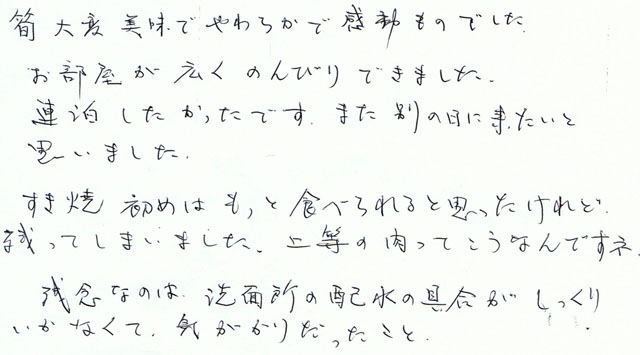 筍 大変 美味で やわらかで 感動ものでした
お部屋が 広く のんびり できました.
連泊 したかったです. また 別の日に来たいと
思いました.
すき焼 初めは もっと 食べられると思ったけれど.
残ってしまいました. 上等の肉って こうなんですネ
残念なのは. 洗面所の配水の具合が しっくり
いかなくて. 気がかりだったこと.